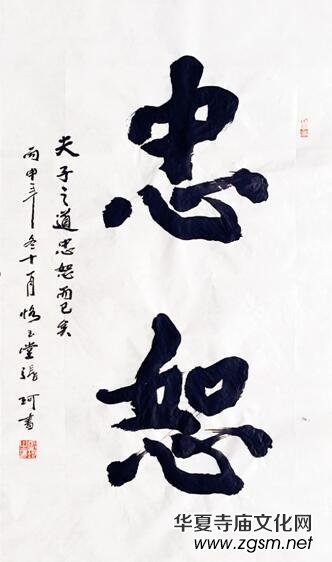 忠恕
夫子之道忠恕而已矣
丙申年冬十月玉堂張珂書
华夏寺庙文化网
www.zgsm.net